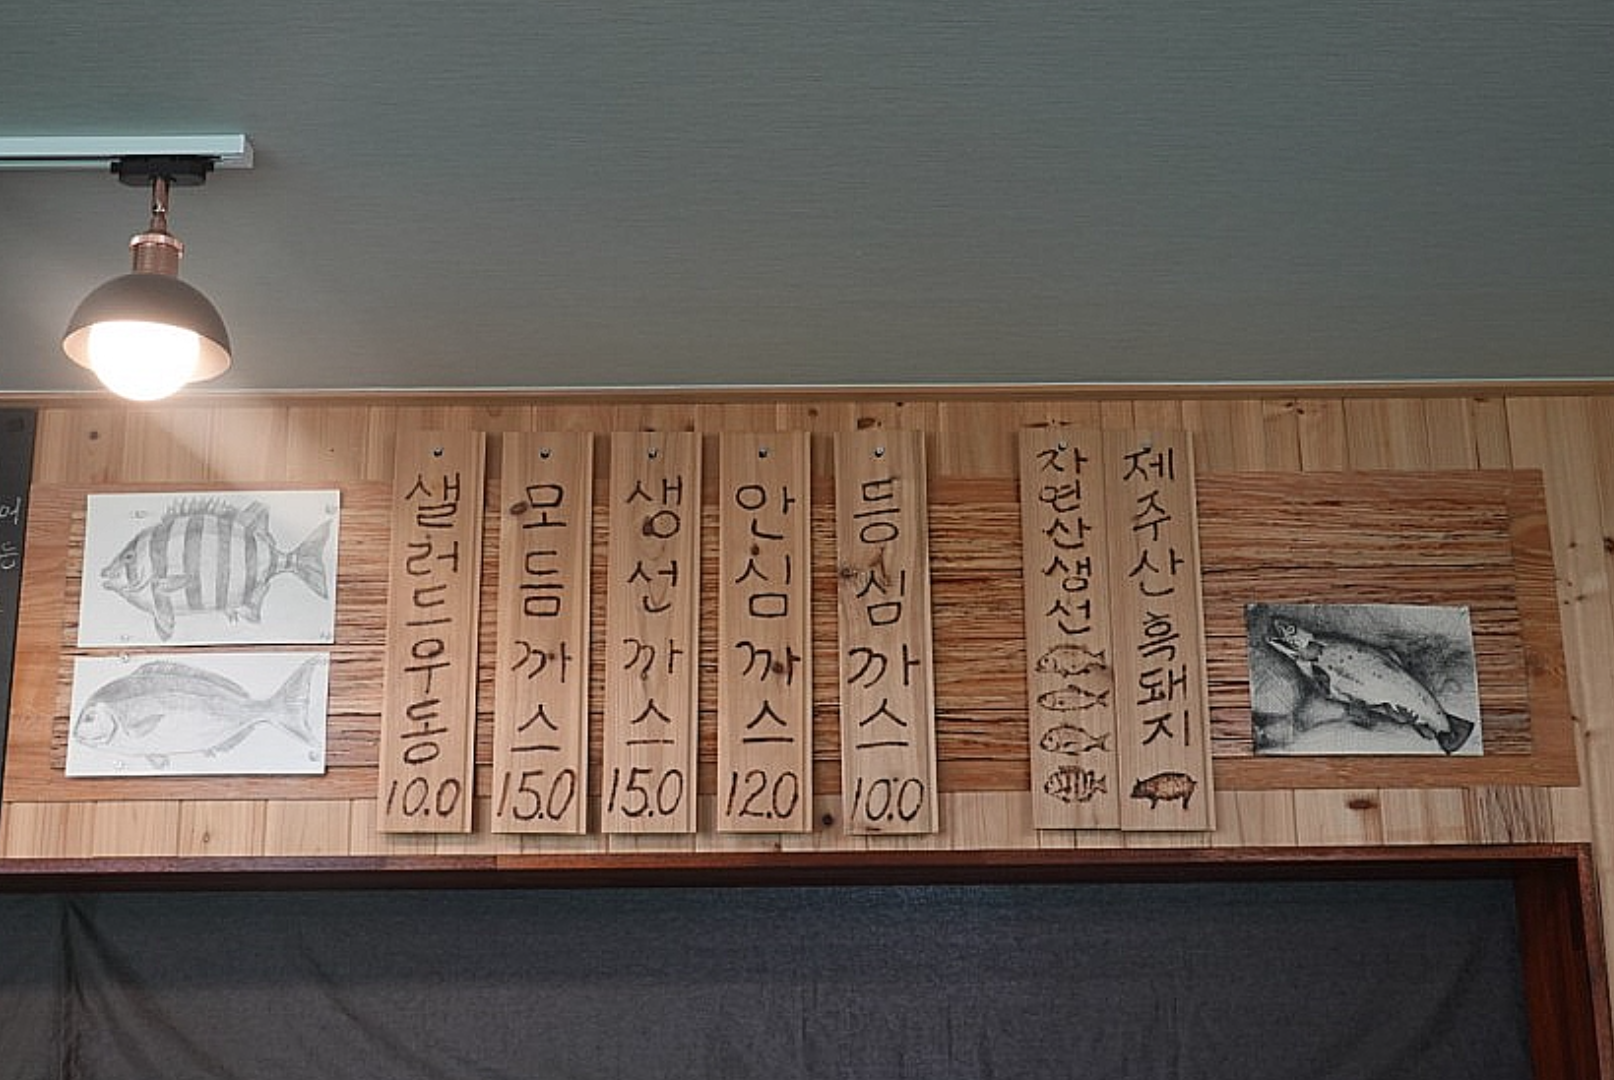 샐러드우동
10.0
모듬까스
15.0
생선까스
15.0
안심까스
12.0
등심까스
10.0
자연산생선
제주산흑돼지